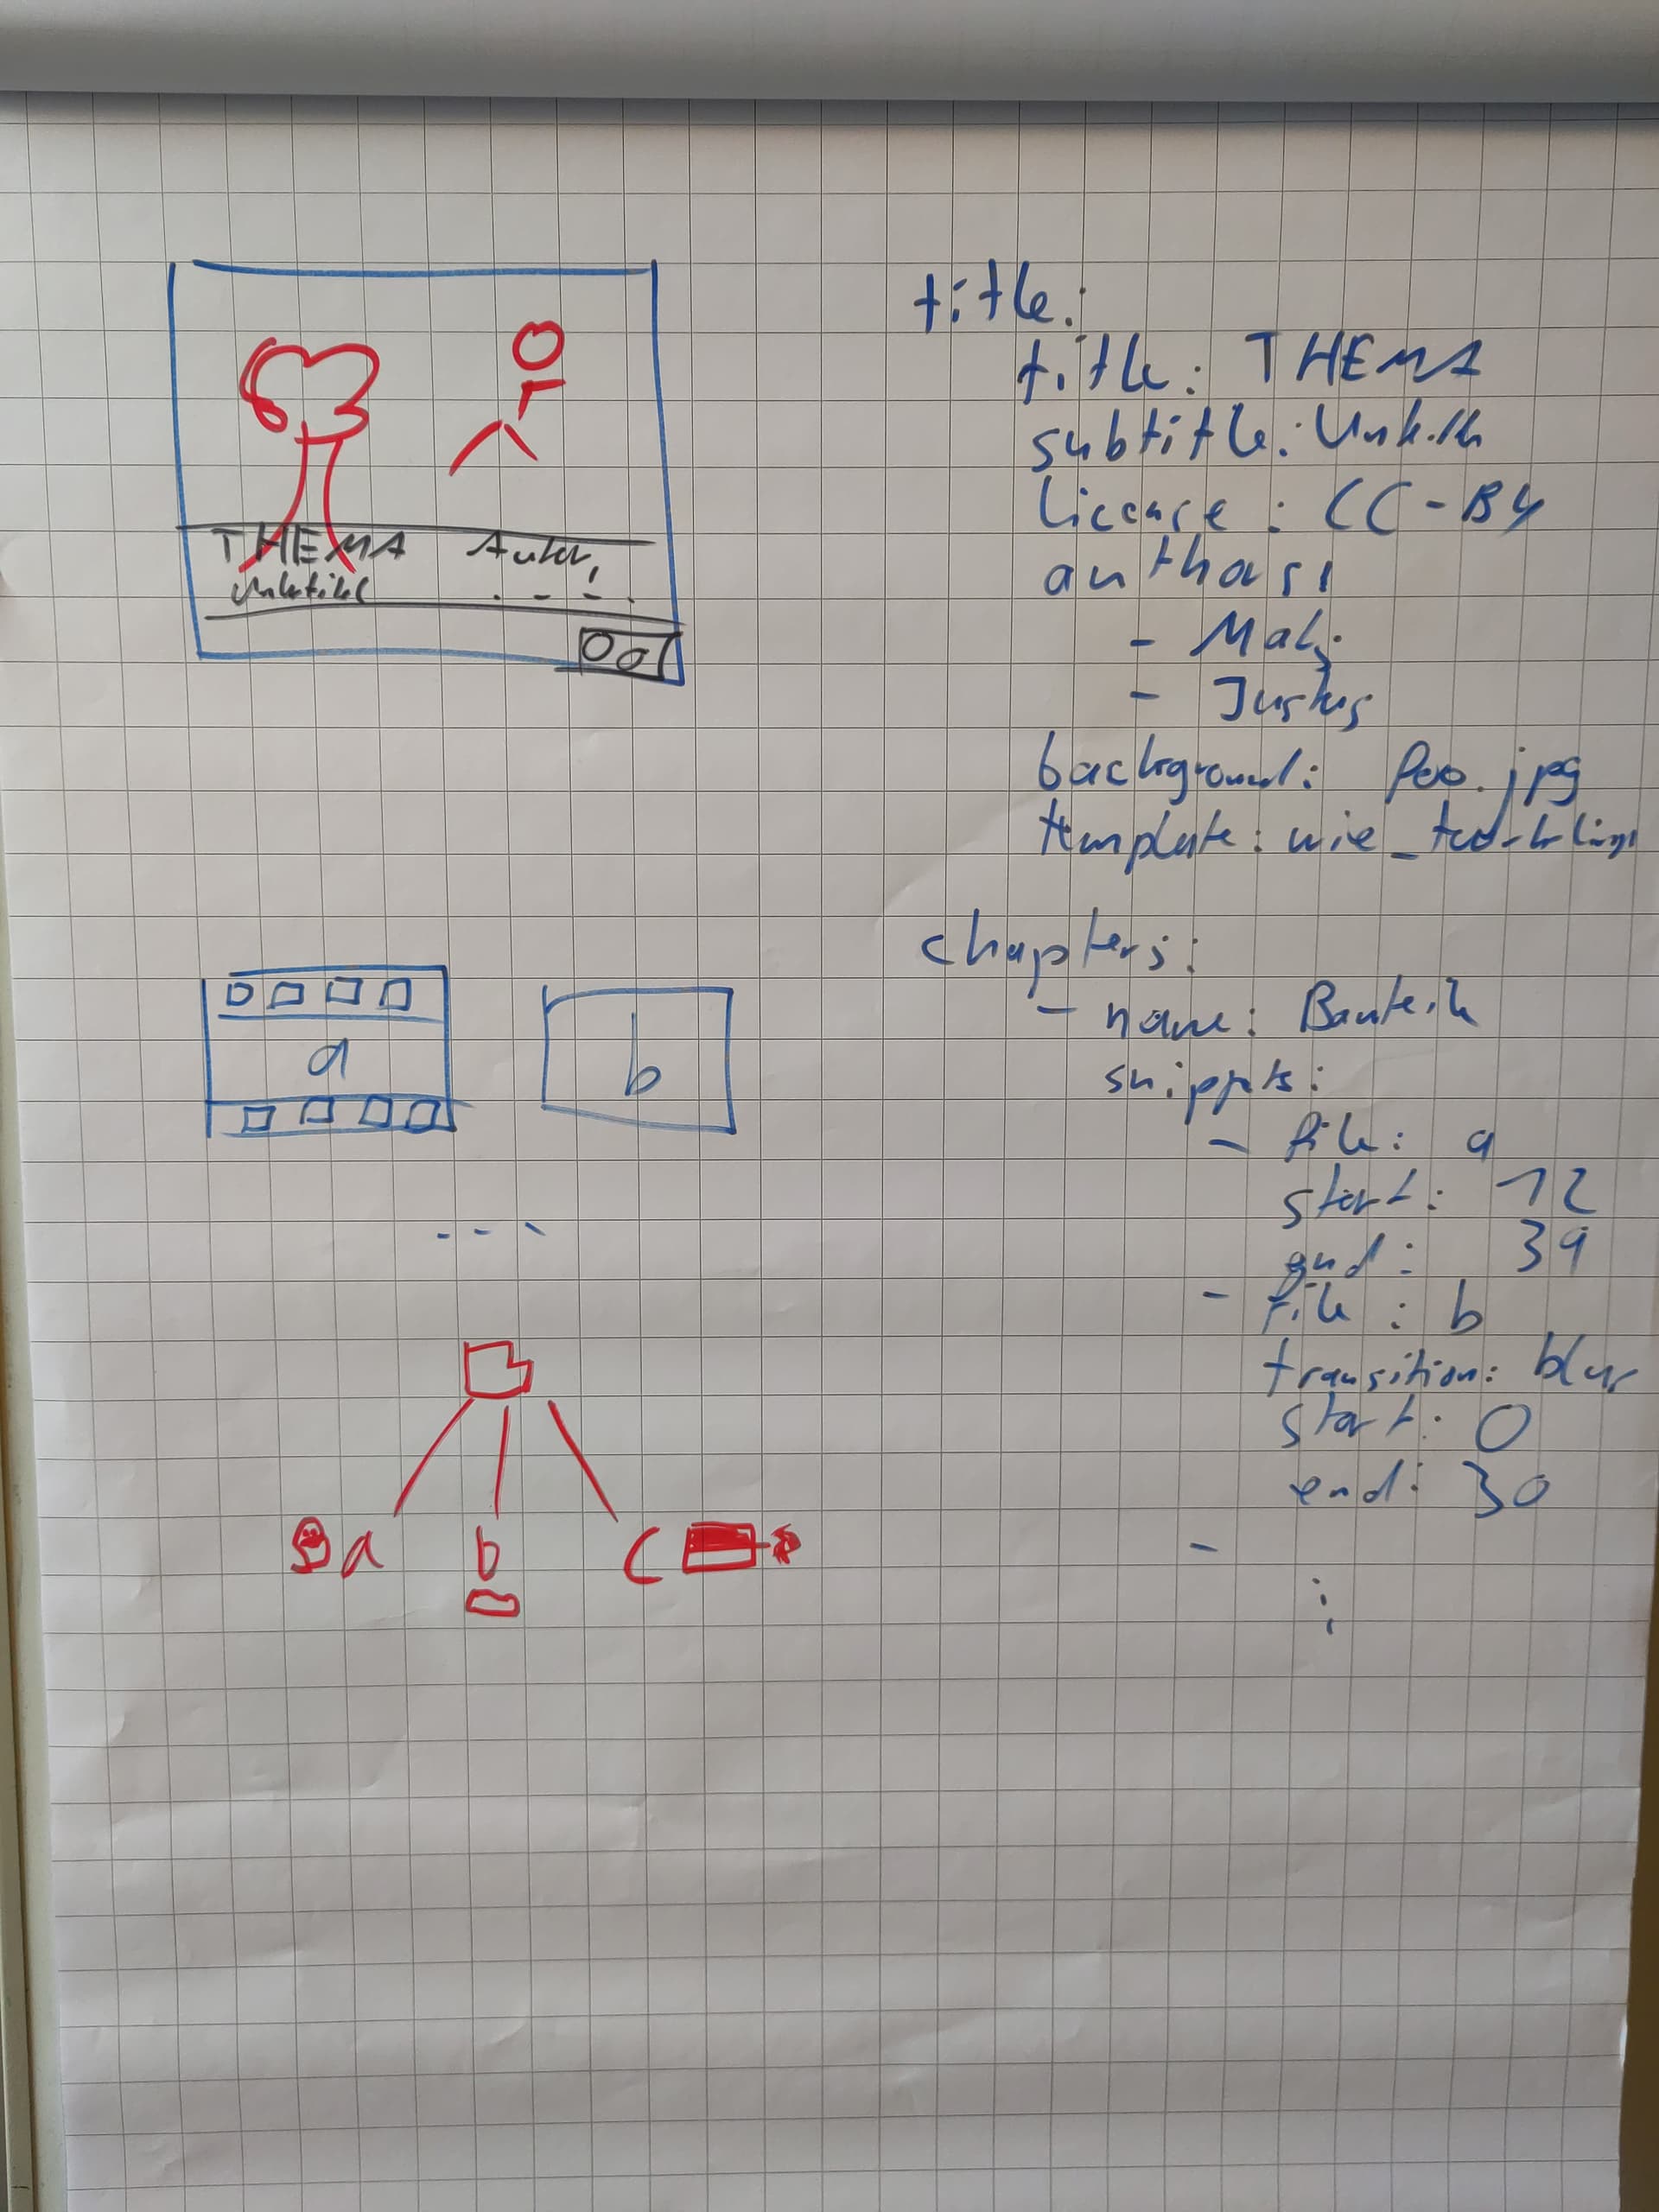 THEMA Autor,
Untertitel
a
b
a b c
title:
title: THEMA
subtitle:
license: CC-BY
authors:
- Justus
background: foo.jpg
template: wie
chapters:
- name: Bauteile
snippets:
- file: a
start: 12
end: 39
- file: b
transition: blur
start: 0
end: 30
-